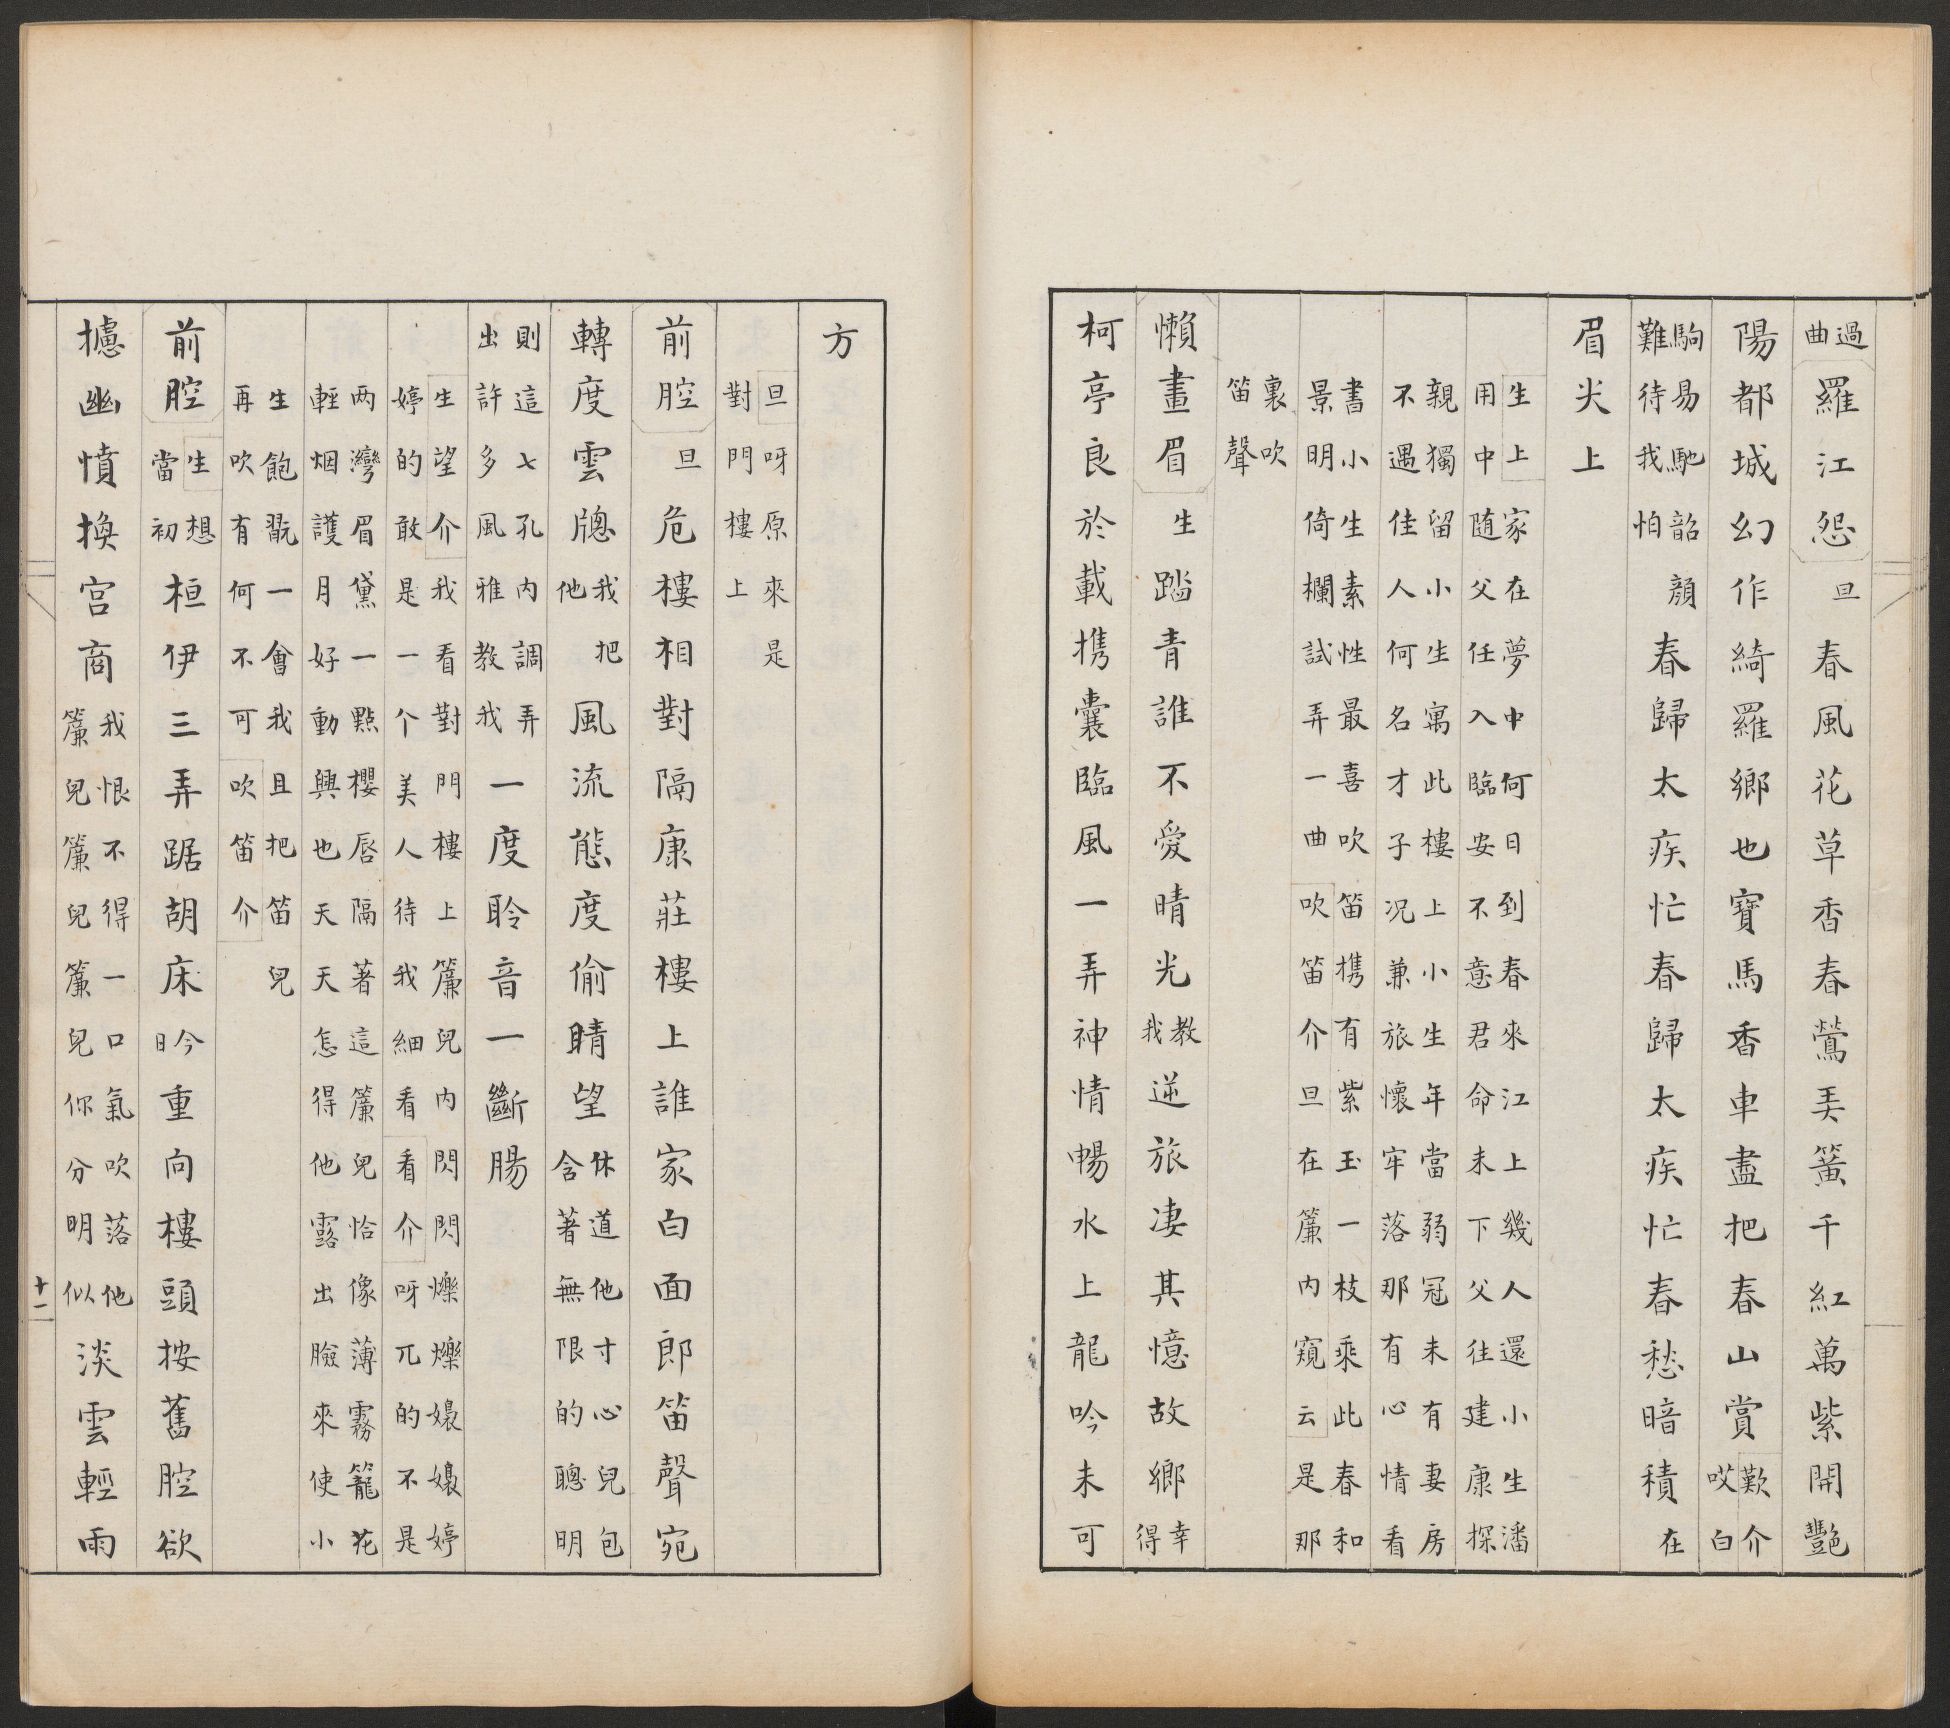 過曲羅江怨旦春風花草香春鶯弄簧千紅萬紫開艷
陽都城幻作綺羅鄉也寶馬香車盡把春山賞歎介哎白
駒易馳韶顔難待我怕春歸太疾忙春歸太疾忙春愁暗積在
眉尖上
生上家在夢中何日到春來江上幾人還小生潘
用中随父任入臨安不意君命未下父往建康探
親獨留小生寓此樓上小生年當弱冠未有妻房
不遇佳人何名才子况兼旅懷牢落那有心情看
書小生素性最喜吹笛携有紫玉一枝乘此春和
景明倚欄試弄一曲吹笛介旦在簾内窺云是那
裏吹
笛聲
懶畫眉生踏青誰不愛晴光教我逆旅凄其憶故鄉幸得
柯亭良於載携囊臨風一弄神情暢水上龍吟未可
方
旦呀原來是
對門樓上
前腔旦危樓相對隔康莊樓上誰家白面郎笛聲宛
轉度雲牕我把他風流態度偷睛望休道他寸心兒包含著無限的聰明
則這七孔内調弄出許多風雅教我一度聆音一斷腸
生望介我看對門樓上簾兒内閃閃爍爍嬝嬝婷
婷的敢是一个美人待我細看看介呀兀的不是
两灣眉黛一點櫻唇隔著這簾兒恰像薄霧籠花
輕烟護月好動興也天天怎得他露出臉來使小
生飽翫一會我且把笛兒
再吹有何不可吹笛介
前腔生想當初桓伊三弄踞胡床今日重向樓頭按舊腔欲
攄幽憤換宮商我恨不得一口氣吹落他簾兒簾兒簾兒你分明似淡雲輕雨
十一